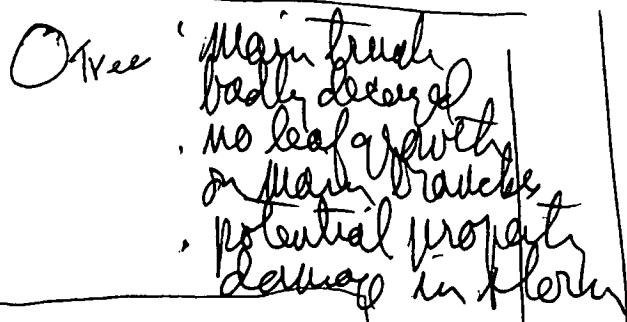 O Tree · main trunk
badly decayed
· no leaf growth
on main branches
· potential property
damage in storm